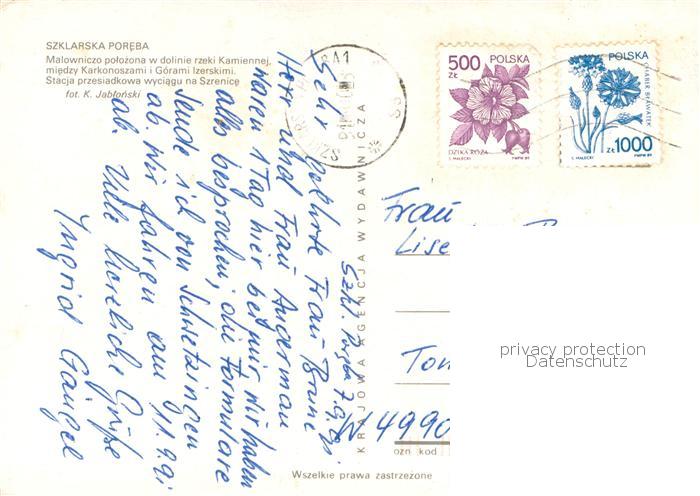 SZKLARSKA PORĘBA
Malowniczo położona w dolinie rzeki Kamiennej,
między Karkonoszami i Górami Izerskimi.
Stacja przesiadkowa wyciągu na Szrenicę
fot. K. Jabłoński
Szkl. Poręba 7.9.91
Sehr geehrte Frau
Herr und Frau Angerman
waren 1 Tag hier bei mir wir haben
alles besprochen, die Formulare
sende ich von Schwetzingen
ab. Wir fahren am 11.9.91
ab. Viele herzliche Grüße
Ingrid
KRAJOWA AGENCJA WYDAWNICZA
500 ZŁ
POLSKA
DZIKA RÓŻA
S. MAŁECKI
PWPW 89
POLSKA
CHABER BŁAWATEK
ZŁ 1000
S. MAŁECKI
PWPW 89
Frau
Lise
Tom
W 4990
privacy protection
Datenschutz
Wszelkie prawa zastrzeżone
ozn kod